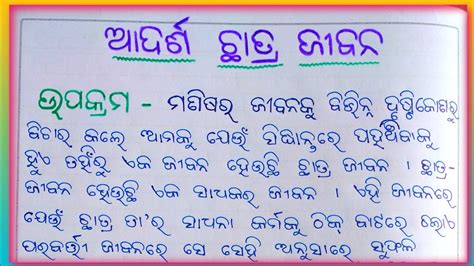 ଆଦର୍ଶ ଛାତ୍ର ଜୀବନ
ଉପକ୍ରମ - ମଣିଷର ଜୀବନକୁ ବିଭିନ୍ନ ଦୃଷ୍ଟିକୋଣରୁ
ବିଚାର କଲେ ଆମକୁ ଯେଉଁ ସିଦ୍ଧାନ୍ତରେ ପହଞ୍ଚିବାକୁ
ହୁଏ ତହିଁରୁ ଏକ ଜୀବନ ହେଉଛି ଛାତ୍ର ଜୀବନ । ଛାତ୍ର-
ଜୀବନ ହେଉଛି ଏକ ସାଧକର ଜୀବନ । ଏହି ଜୀବନରେ
ଯେଉଁ ଛାତ୍ର ତା'ର ସାଧନା କର୍ମକୁ ଠିକ୍ ବାଟରେ
ପରବର୍ତ୍ତୀ ଜୀବନରେ ସେ ସେହି ଅନୁସାରେ ସୁଫଳ